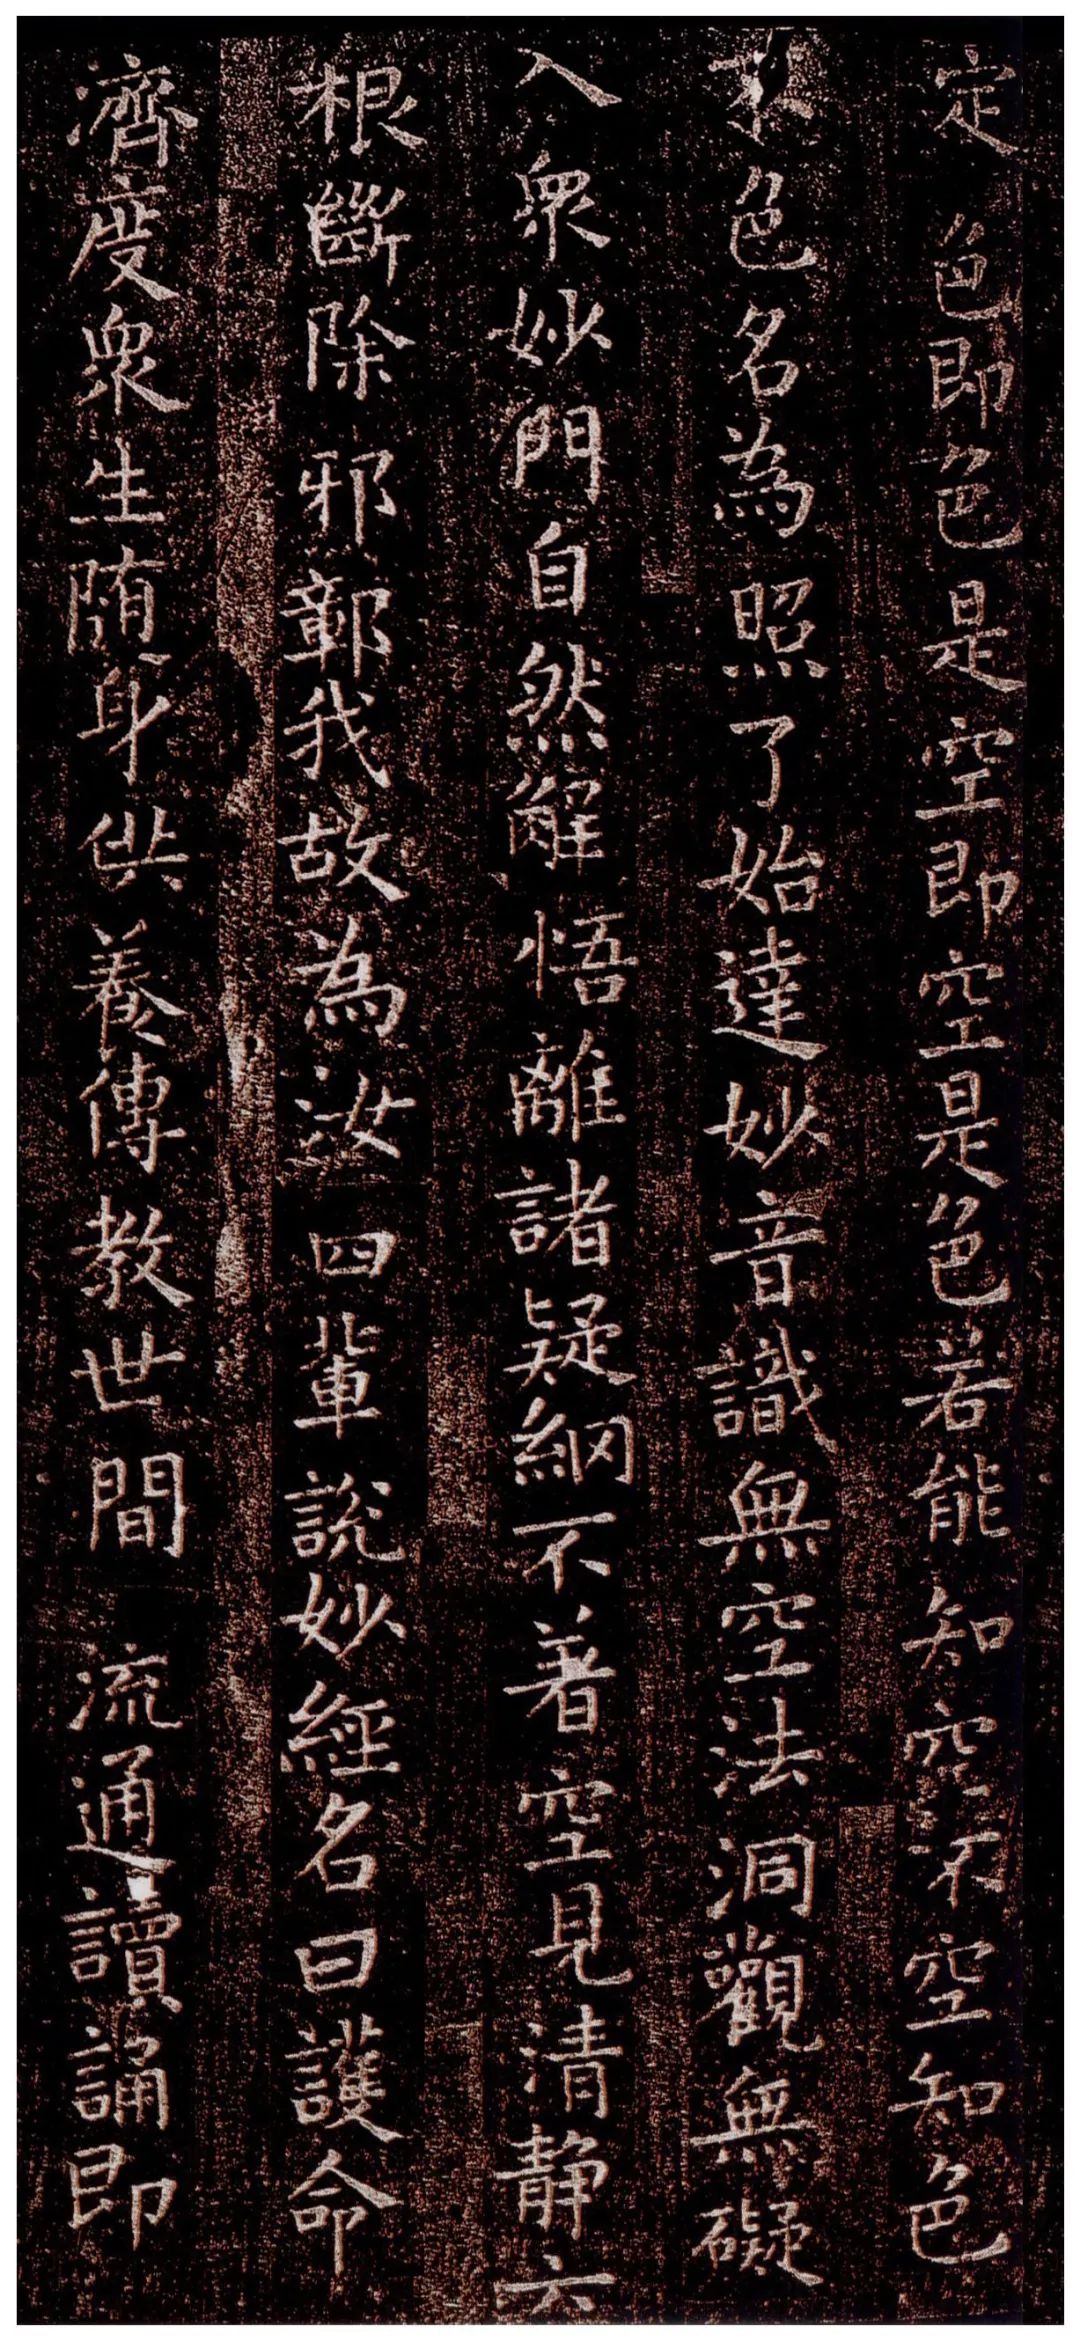 定色即色是空即空是色若能知空不空知色
不色名為照了始達妙音識無空法洞觀無礙
入衆妙門自然解悟離諸疑網不著空見清靜六
根斷除邪鄣我故為汝四輩說妙經名曰護命
濟度衆生隨身供養傳教世間流通讀誦即